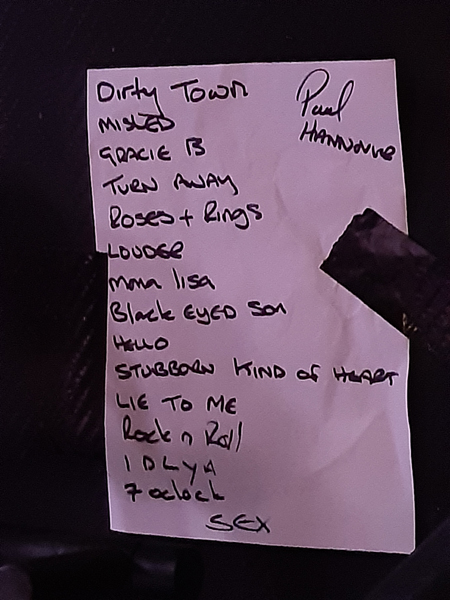 Dirty Town
MISLED
GRACIE B
TURN AWAY
Roses + Rings
LOUDER
mona lisa
Black EYED Son
HELLO
STUBBORN KIND of HEART
LIE TO ME
Rock n Roll
I D L Y A
7 oclock
SEX
Paul